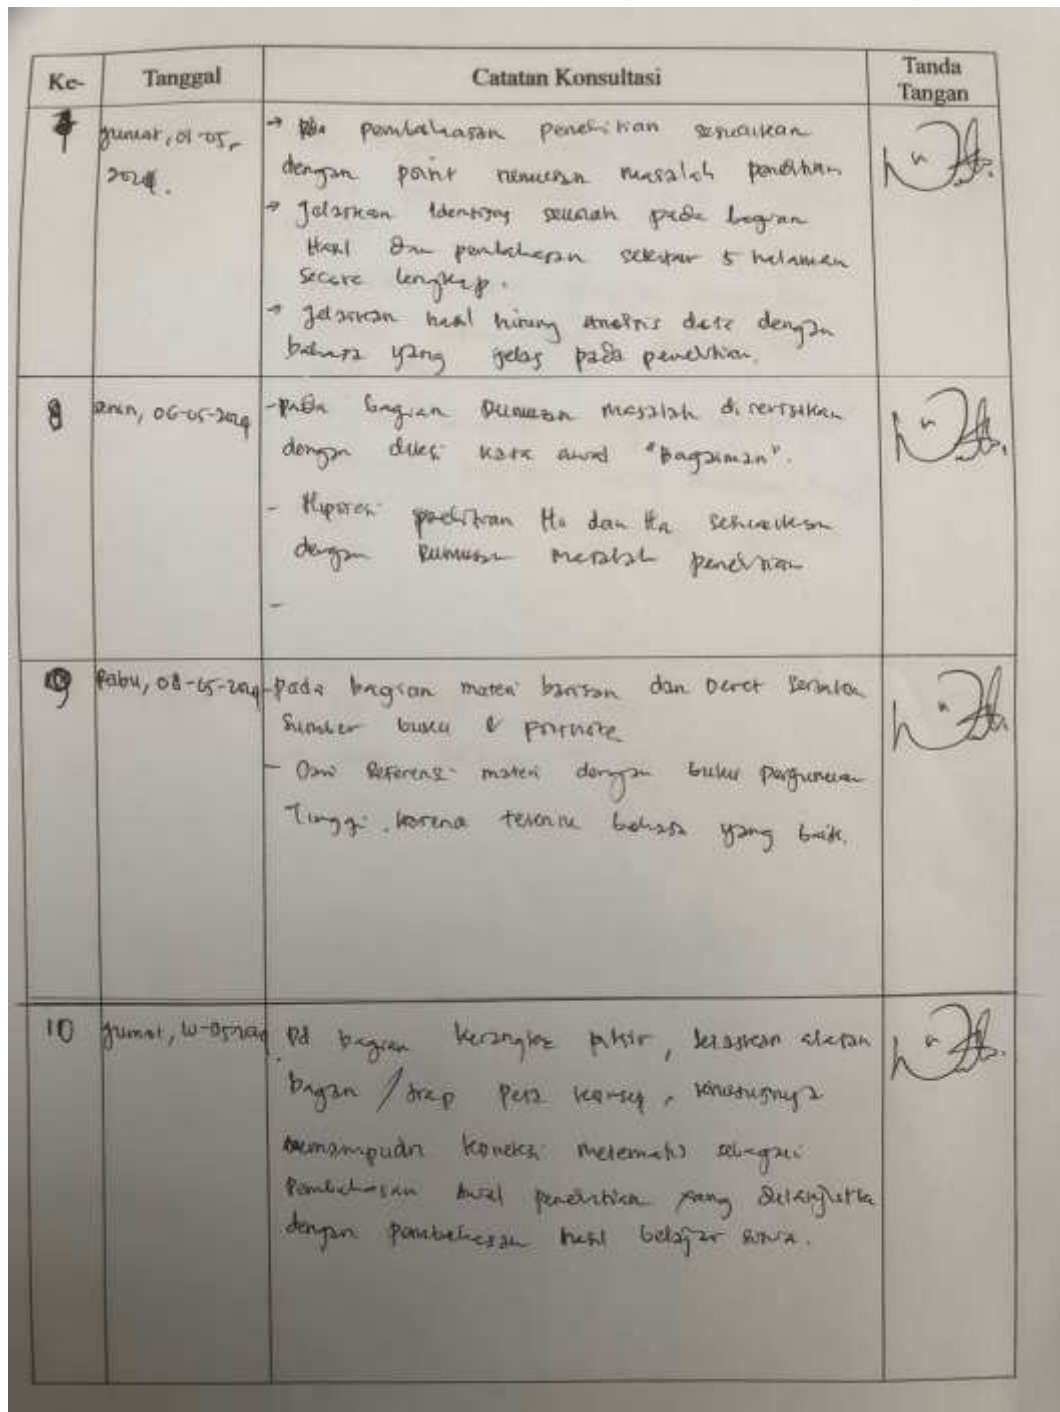 Ke- Tanggal Catatan Konsultasi Tanda Tangan
7 Jumat, 01-05-2024. → pembahasan penelitian sesuaikan
dengan point rumusan masalah penelitian
→ Jelaskan identitas sekolah pada bagian
Hasil dan pembahasan sekitar 5 halaman
secara lengkap.
→ Jelaskan hasil hitung analisis data dengan
bahasa yang jelas pada penelitian.
8 Senin, 06-05-2024 - pada bagian Rumusan masalah direvisikan
dengan diksi kata awal "Bagaiman".
- Hipotesi penelitian Ho dan Ha sesuaikan
dengan Rumusan masalah penelitian
-
9 Rabu, 08-05-2024 - pada bagian materi barisan dan Deret
Sumber buku & footnote
- Referensi materi dengan buku perguruan
Tinggi, karena teknik bahasa yang baik.
10 Jumat, 10-05-2024 Pd bagian kerangka pikir, jelaskan
bagan / peta konsep, khususnya
kemampuan koneksi matematis sebagai
Pembahasan awal penelitian yang dilanjutka
dengan pembahasan hasil belajar siswa.